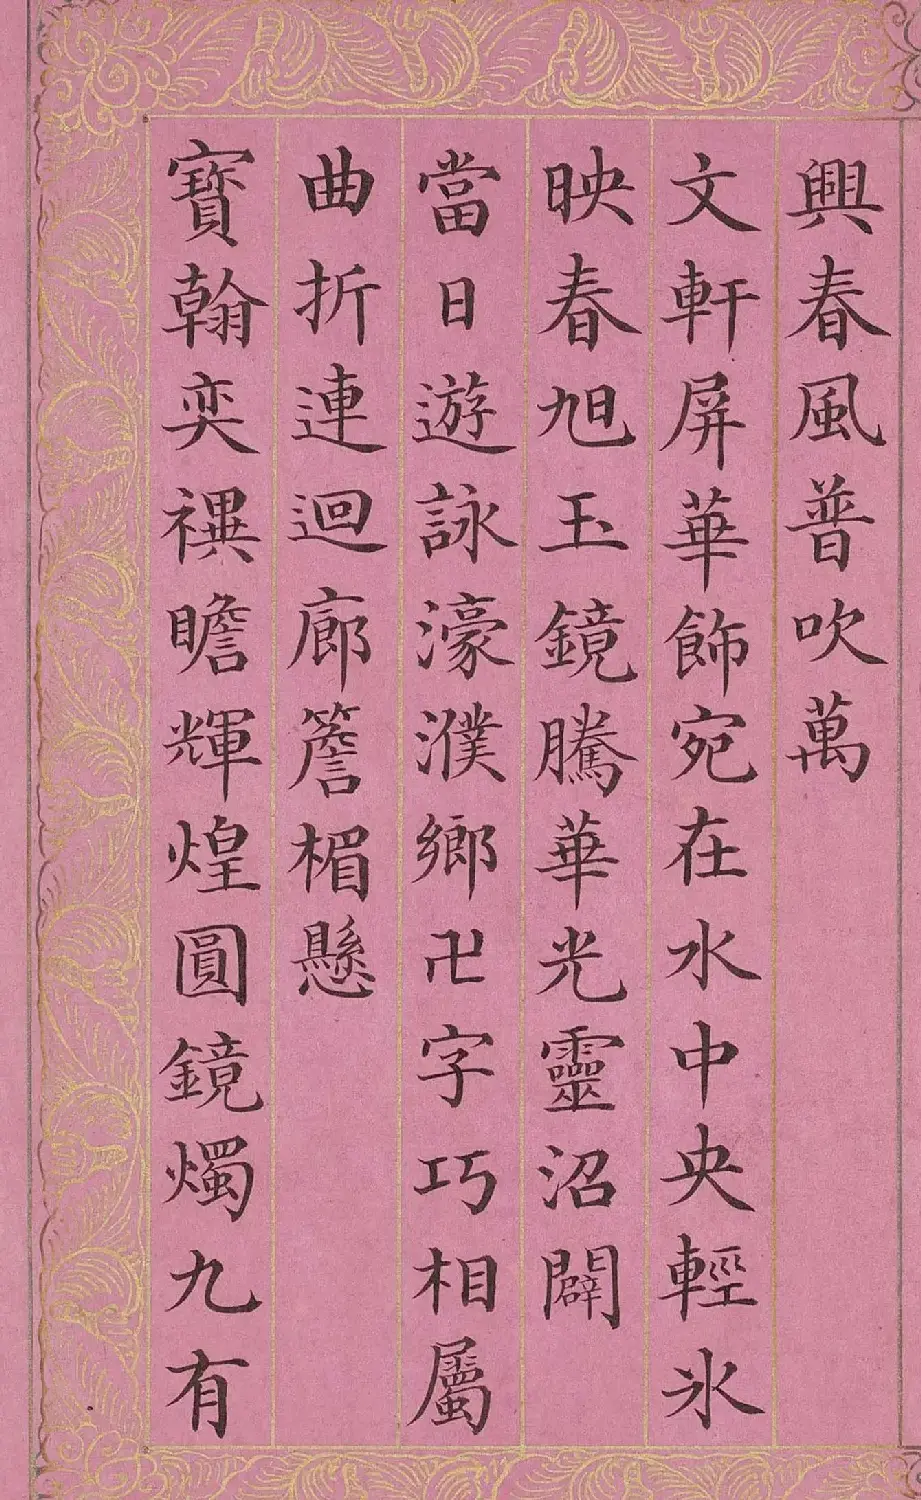 興春風普吹萬
文軒屏華飾宛在水中央輕氷
映春旭玉鏡騰華光靈沼闢
當日遊詠濠濮鄉卍字巧相屬
曲折連迴廊簷楣懸
寶翰奕禩瞻輝煌圓鏡燭九有